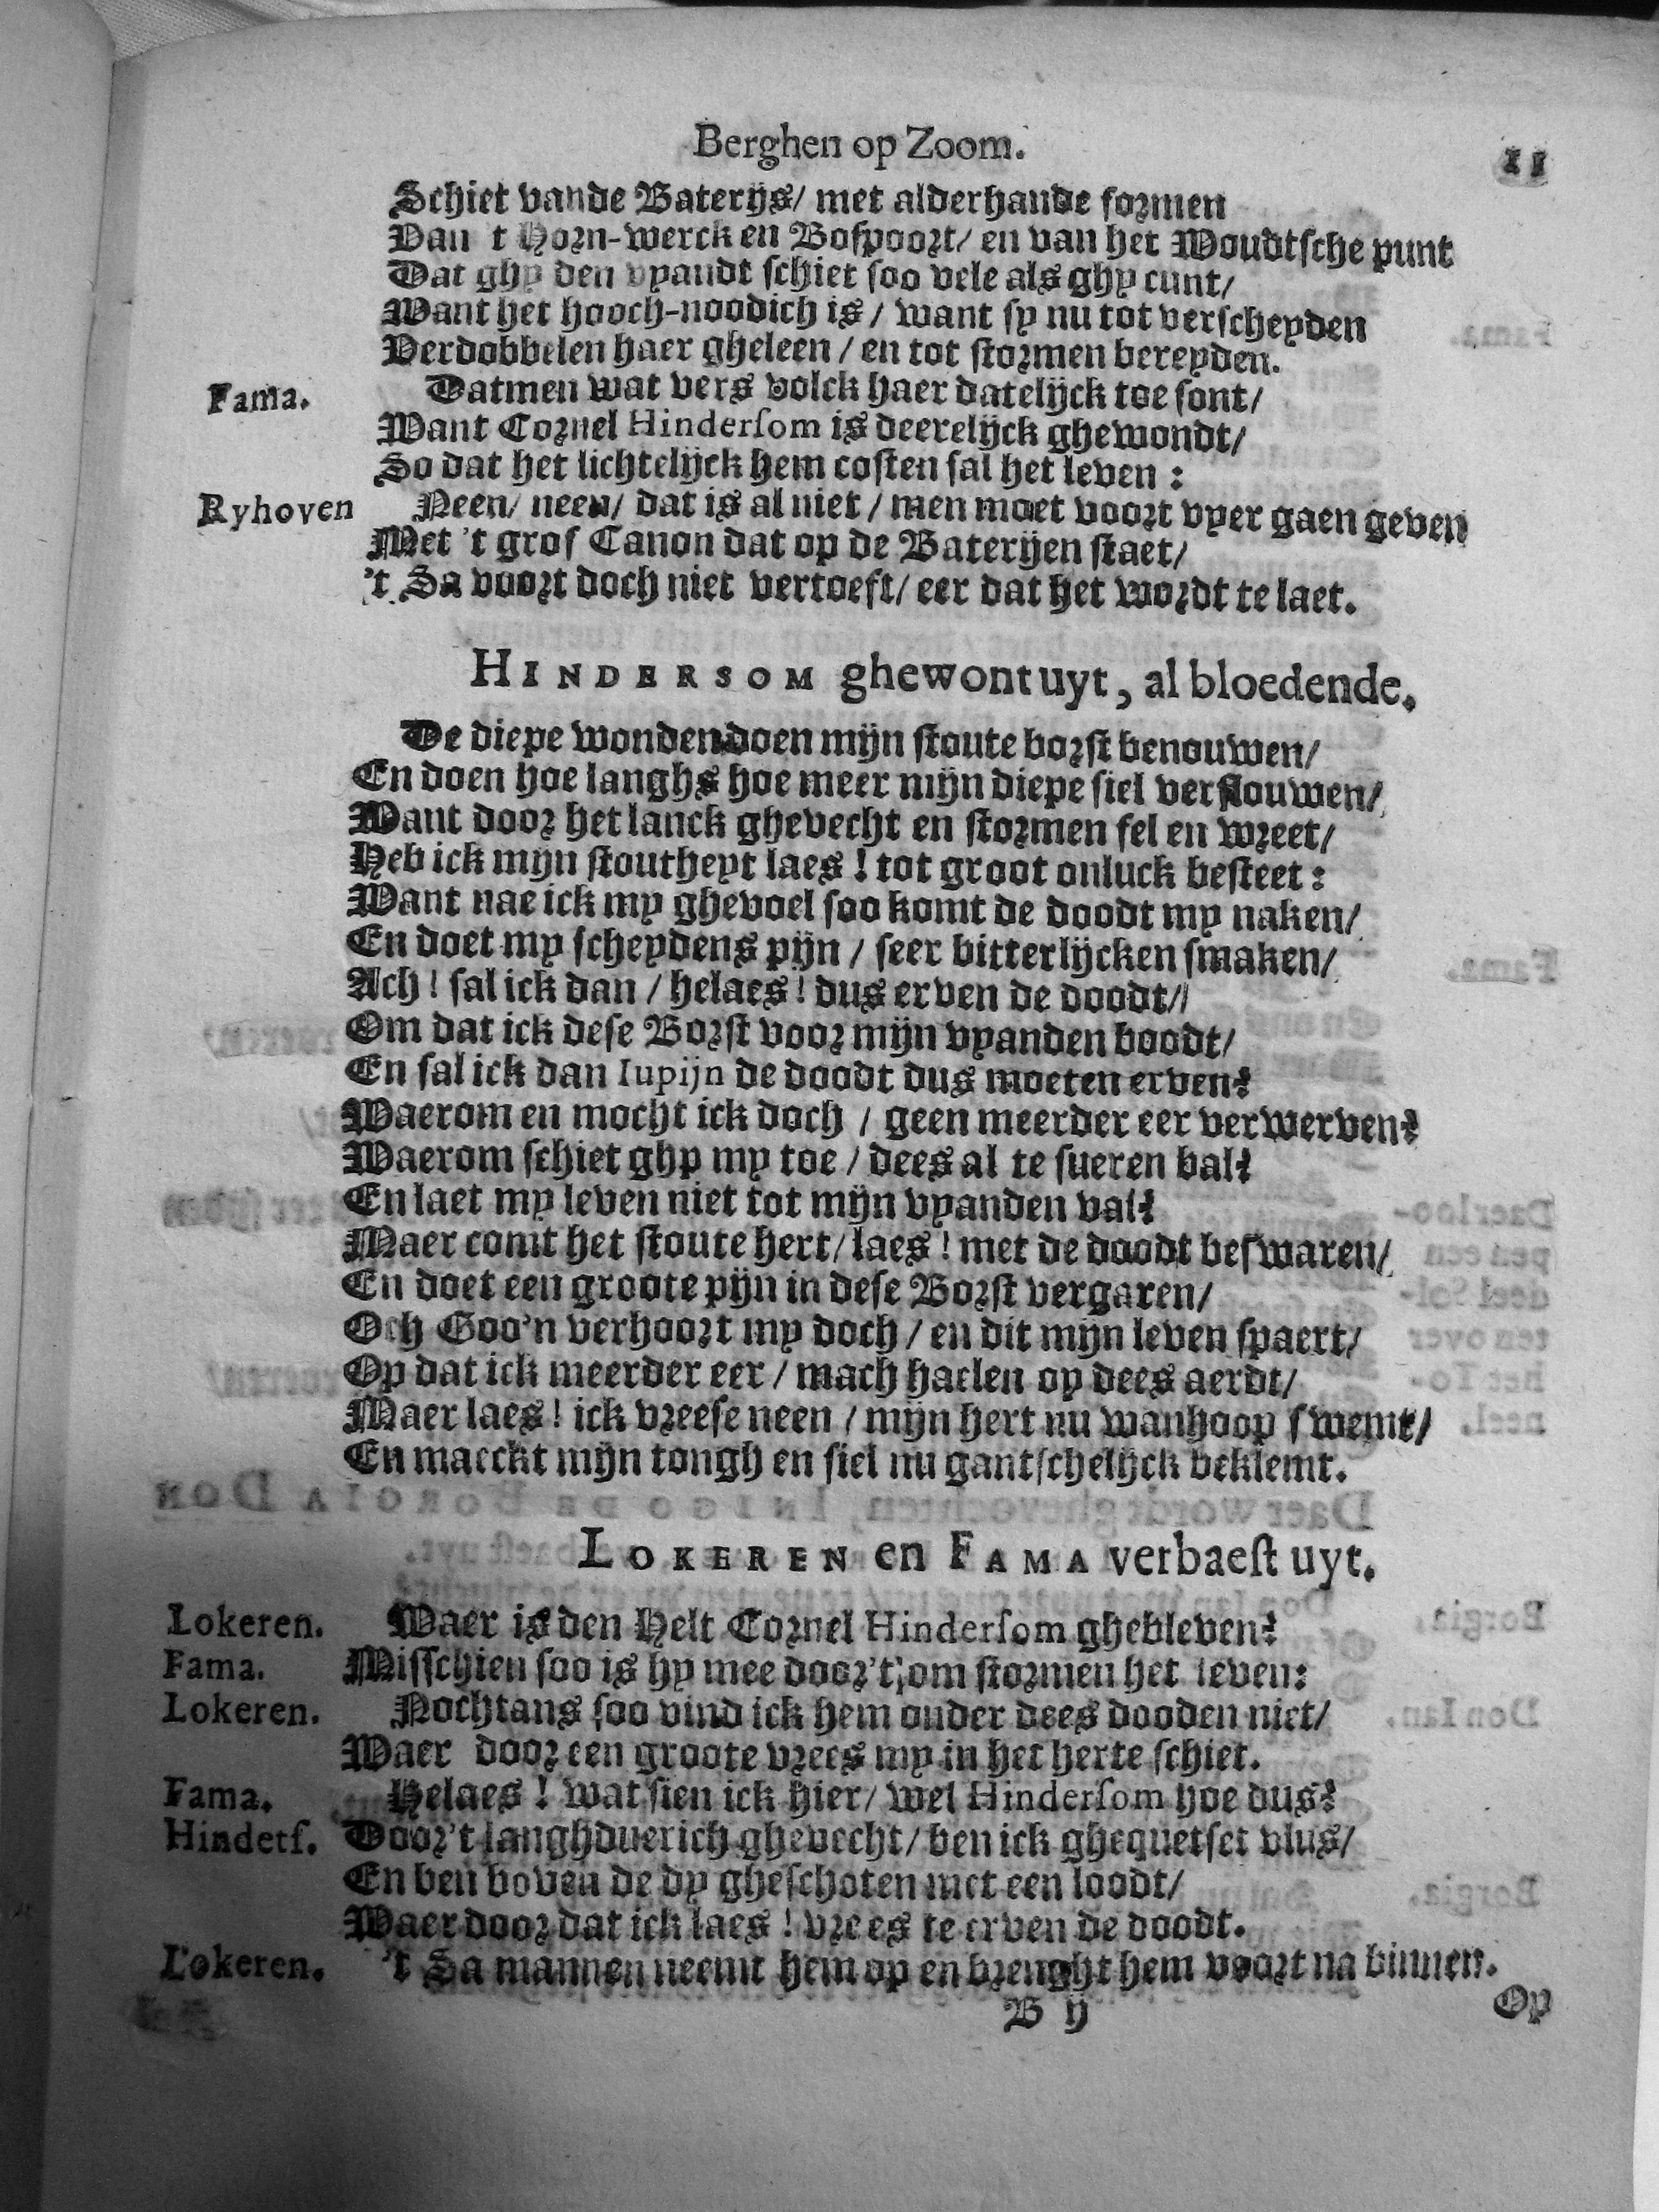 Berghen op Zoom. 11
Schiet vande Baterijs/ met alderhande formen
Van 't Horn-werck en Bospoort/ en van het Woudtsche punt
Dat ghy den vyandt schiet soo vele als ghy cunt/
Want het hooch-noodich is / want sy nu tot verscheyden
Verdobbelen haer gheleen / en tot stormen bereyden.
Fama. Datmen wat vers volck haer datelijck toe sont/
Want Cornel Hindersom is deerelijck ghewondt/
So dat het lichtelijck hem costen sal het leven :
Ryhoven Neen/ neen/ dat is al niet / men moet voort vyer gaen geven
Met 't gros Canon dat op de Baterijen staet/
't Sa voort doch niet vertoeft/ eer dat het wordt te laet.
HINDERSOM ghewont uyt, al bloedende.
De diepe wonden doen mijn stoute borst benouwen/
En doen hoe langhs hoe meer mijn diepe siel verflouwen/
Want door het lanck ghevecht en stormen fel en wreet/
Heb ick mijn stoutheyt laes ! tot groot onluck besteet :
Want nae ick my ghevoel soo komt de doodt my naken/
En doet my scheydens pijn / seer bitterlijcken smaken/
Ach ! sal ick dan / helaes ! dus erven de doodt/
Om dat ick dese Borst voor mijn vyanden boodt/
En sal ick dan Iupijn de doodt dus moeten erven?
Waerom en mocht ick doch / geen meerder eer verwerven?
Waerom schiet ghy my toe / dees al te sueren bal?
En laet my leven niet tot mijn vyanden val?
Maer comt het stoute hert/ laes ! met de doodt beswaren/
En doet een groote pijn in dese Borst vergaren/
Och Goo'n verhoort my doch / en dit mijn leven spaert/
Op dat ick meerder eer / mach haelen op dees aerdt/
Maer laes ! ick vreese neen / mijn hert nu wanhoop swemt/
En maeckt mijn tongh en siel nu gantschelijck beklemt.
LOKEREN en FAMA verbaest uyt.
Lokeren. Waer is den Helt Cornel Hindersom ghebleven?
Fama. Misschien soo is hy mee door 't om stormen het leven:
Lokeren. Nochtans soo vind ick hem onder dees dooden niet/
Waer door een groote vrees my in het herte schiet.
Fama. Helaes ! wat sien ick hier/ wel Hindersom hoe dus?
Hindets. Door 't langhduerich ghevecht/ ben ick ghequetset vlus/
En ben boven de dy gheschoten met een loodt/
Waer door dat ick laes ! vrees te erven de doodt.
Lokeren. 't Sa mannen neemt hem op en brenght hem voort na binnen.
B ij Op